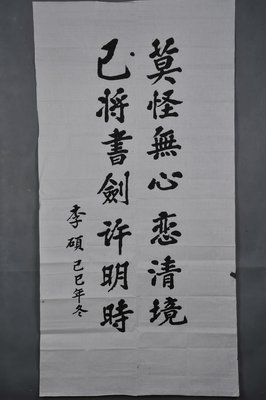 莫怪無心恋清境
已将書劍许明時
李碩 己巳年冬